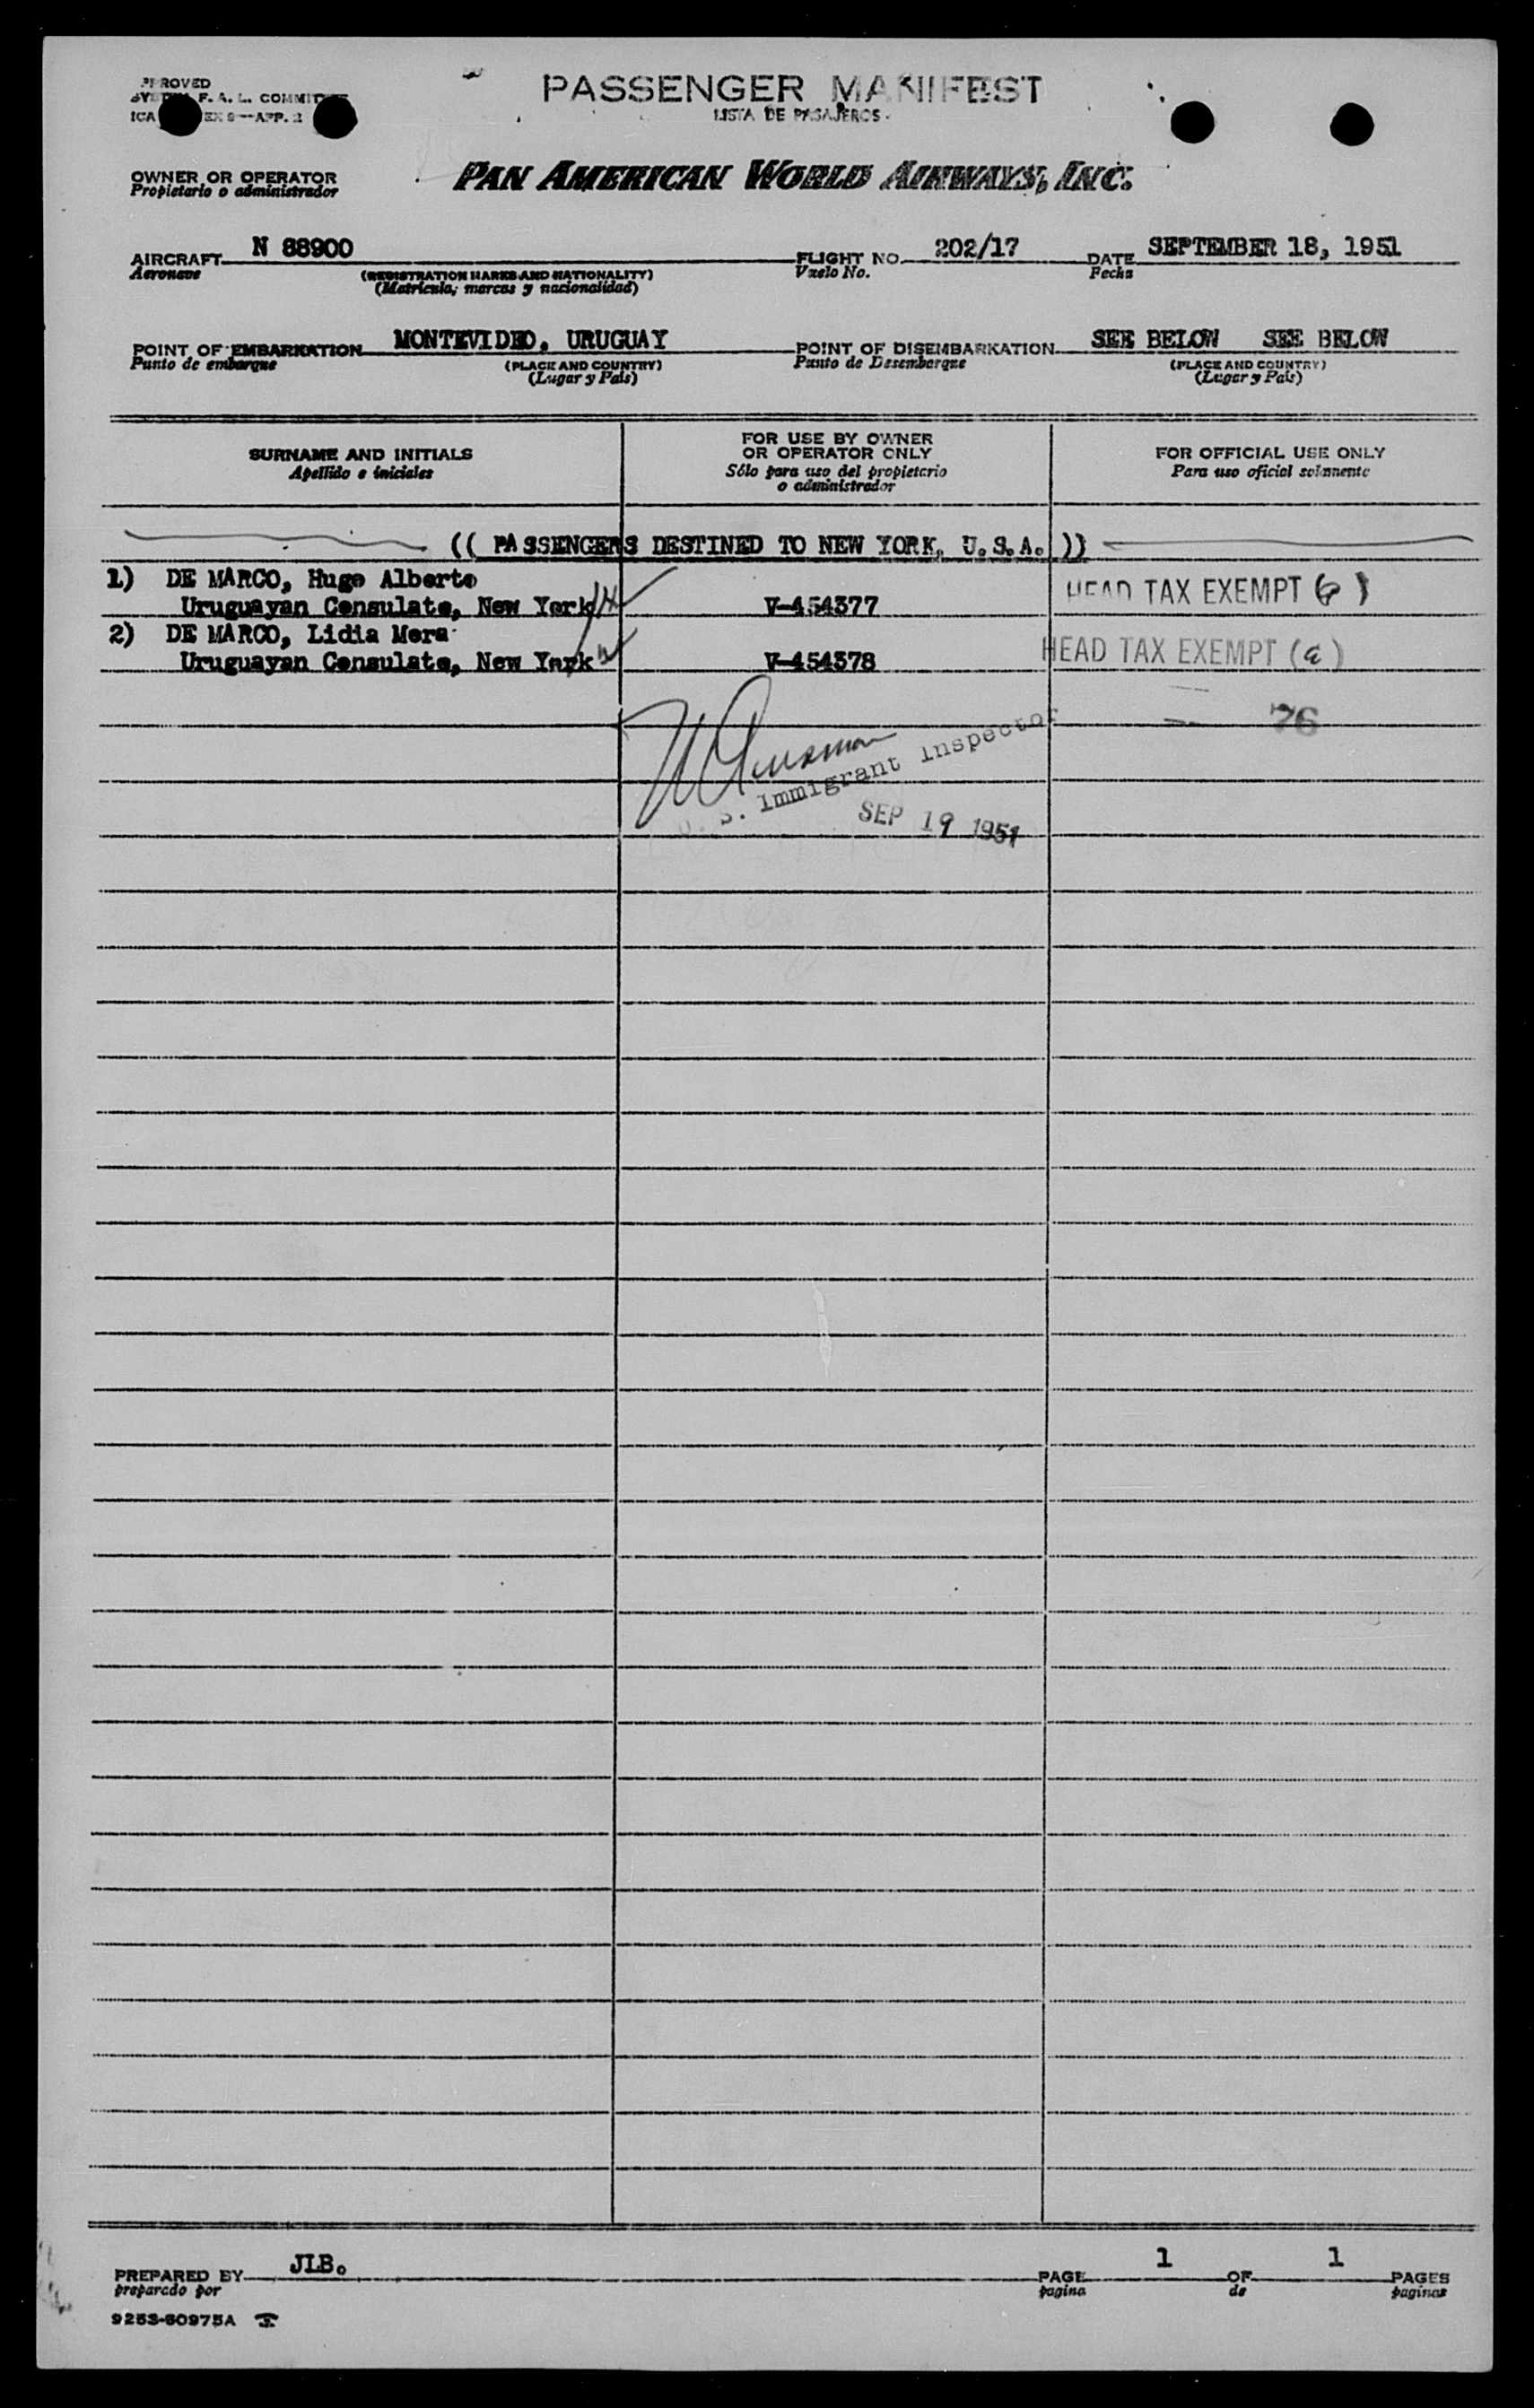 PPROVED
F. A. L. COMMIT
ICA EX 9—APP. 2
PASSENGER MANIFEST
LISTA DE PASAJEROS
OWNER OR OPERATOR
Propietario o administrador
PAN AMERICAN WORLD AIRWAYS, INC.
AIRCRAFT N 88900 FLIGHT NO. 202/17 DATE SEPTEMBER 18, 1951
Aeronave (REGISTRATION MARKS AND NATIONALITY) Vuelo No. Fecha
(Matricula, marcas y nacionalidad)
POINT OF EMBARKATION MONTEVIDEO, URUGUAY POINT OF DISEMBARKATION SEE BELOW SEE BELOW
Punto de embarque (PLACE AND COUNTRY) Punto de Desembarque (PLACE AND COUNTRY)
(Lugar y País) (Lugar y País)
SURNAME AND INITIALS
Apellido e iniciales
FOR USE BY OWNER
OR OPERATOR ONLY
Sólo para uso del propietario
o administrador
FOR OFFICIAL USE ONLY
Para uso oficial solamente
(( PASSENGERS DESTINED TO NEW YORK, U.S.A. ))
1) DE MARCO, Hugo Alberto
Uruguayan Consulate, New York V-454377 HEAD TAX EXEMPT
2) DE MARCO, Lidia Mera
Uruguayan Consulate, New York V-454378 HEAD TAX EXEMPT (a)
76
U. S. Immigrant Inspector
SEP 19 1951
PREPARED BY JLB. PAGE 1 OF 1 PAGES
preparado por pagina de paginas
9253-60975A